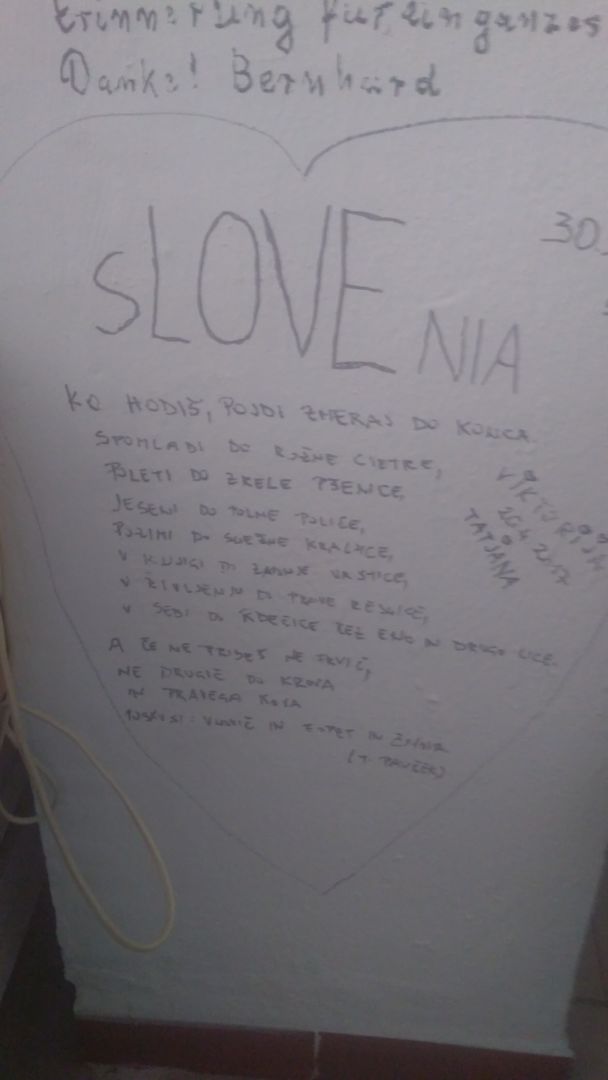 Erinnerung für ein ganzes
Danke! Bernhard
sLOVENIA
30.
KO HODIŠ, POJDI ZMERAJ DO KONCA.
SPOMLADI DO ROŽNE CVETKE,
POLETI DO ZRELE PŠENICE,
JESENI DO POLNE POLICE,
POZIMI DO SNEŽNE KRALJICE,
V KNJIGI DO ZADNJE VRSTICE,
V ŽIVLJENJU DO PRAVE RESNICE,
V SEBI DO RDEČICE ČEZ ENO IN DRUGO LICE.
A ČE NE PRIDEŠ NE PRVIČ,
NE DRUGIČ DO KROVA
IN PRAVEGA KOVA
POSKUSI: VNOVIČ IN ZOPET IN ZNOVA
(T. PAVČEK)
VIKTORIJA
2017
TATJANA